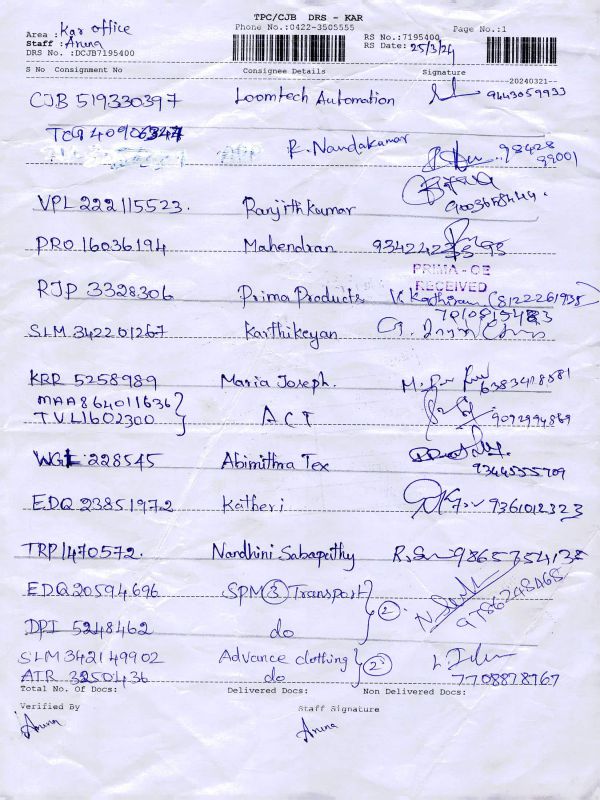 TPC/CJB DRS - KAR
Phone No.:0422-3505555
Area : Kar office
Staff : Aruna
DRS No. :DCJB7195400
RS No.:7195400
RS Date: 25/3/24
Page No.:1
S No Consignment No Consignee Details Signature
--20240321--
CJB 519330397 Loomtech Automation 9443059933
R. Nandakumar 98428 99001
VPL 222115523. Ranjithkumar
PRO 16036194 Mahendran
PRIMA - CE
RECEIVED
RJP 3328306 Prima Products
SLM 342201267 Karthikeyan
KRR 5258989 Maria Joseph. 6383418581
MAA864011636
TVL1602300 ACT 9092994889
WGL 228545 Abimithra Tex 93445355709
EDQ 23851972 Katheri 9361012323
TRP1470572. Nandhini Sabapathy 9865754138
EDQ20594696 SPM 3 Transport 2 9786248468
DPI 5248462 do
SLM 342149902 Advance clothing 2
ATR 3250436 do 7708878767
Total No. Of Docs: Delivered Docs: Non Delivered Docs:
Verified By Staff Signature
Aruna Aruna